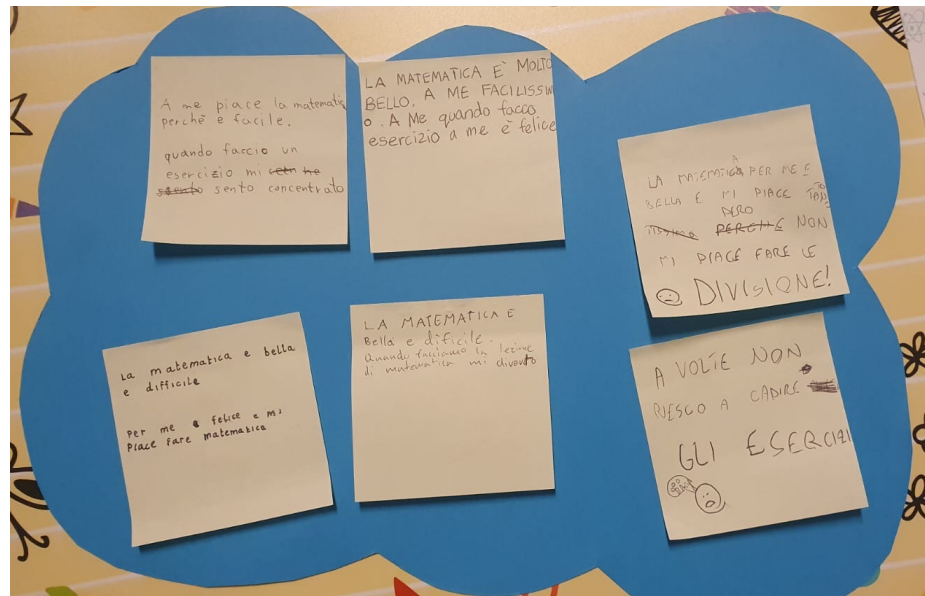 A me piace la matematic
perchè e facile.
quando faccio un
esercizio mi
sento concentrato
LA MATEMATICA E' MOLTO
BELLO. A ME FACILISSIM
O. A Me quando facco
esercizio a me è felice
LA MATEMATICA PER ME E
BELLA E MI PIACE TANTO
PERO
PERCHE NON
MI PIACE FARE LE
DIVISIONE!
La matematica e bella
e difficile
Per me e felice e mi
Piace fare matematica
LA MATEMATICA E
Bella e dificile.
Quando facciamo la lezione
di matematica mi diverto
A VOLTE NON
RIESCO A CADIRE
GLI ESERCIZI